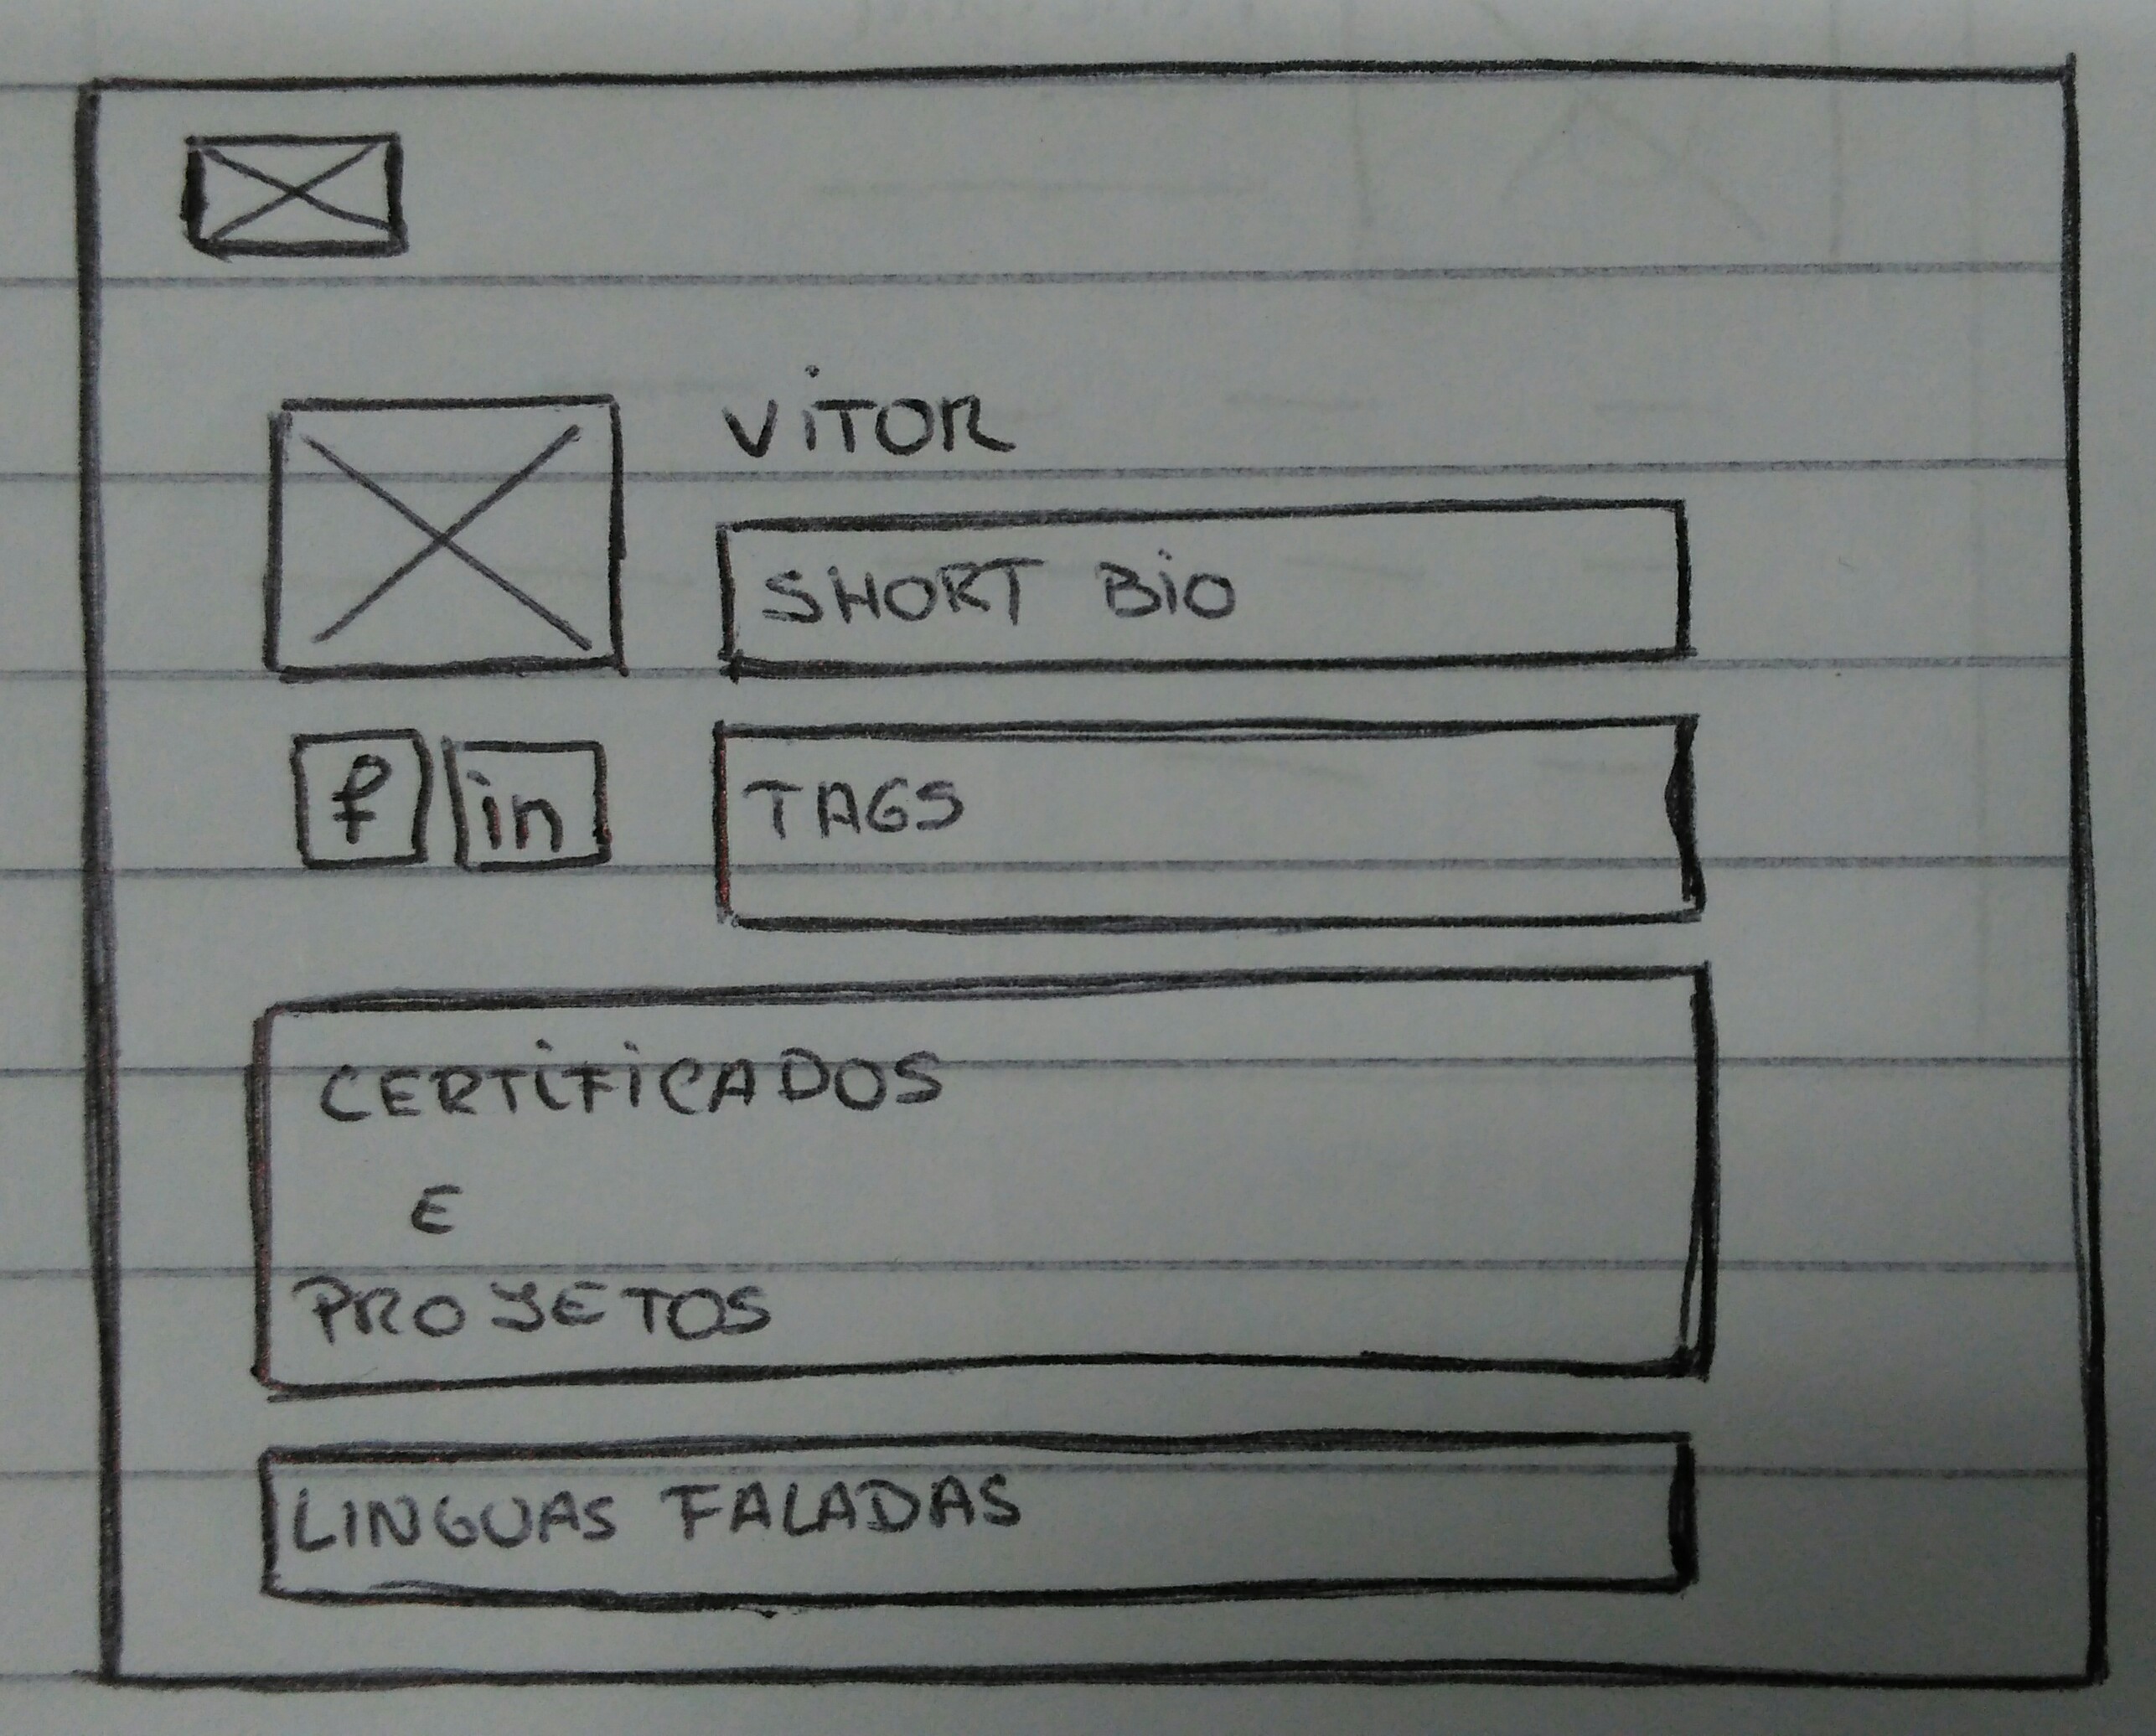 ViTOR
SHORT BiO
f in
TAGS
CERTiFiCADOS
E
PROJETOS
LINGUAS FALADAS